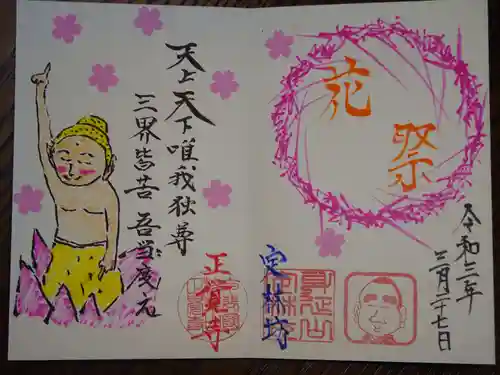 花
祭
令和三年
三月二十七日
天上天下唯我独尊
三界皆苦 吾当度之
正覚寺
定林坊